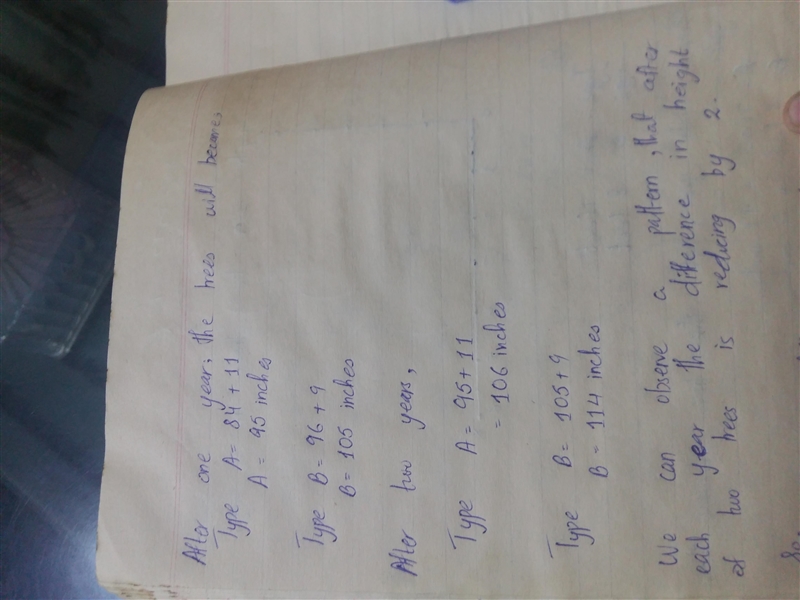 After one year, the trees will becomes
Type A = 84 + 11
A = 95 inches
Type B = 96 + 9
B = 105 inches
After two years,
Type A = 95 + 11
= 106 inches
Type B = 105 + 9
B = 114 inches
We can observe a pattern, that after
each year the difference in height
of two trees is reducing by 2.
So,